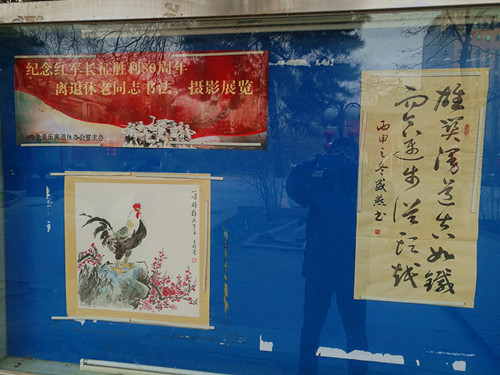 纪念红军长征胜利80周年
离退休老同志书法 摄影展览
音乐离退休办公室主办
雄关漫道真如铁
而今迈步从头越
丙申之冬
书